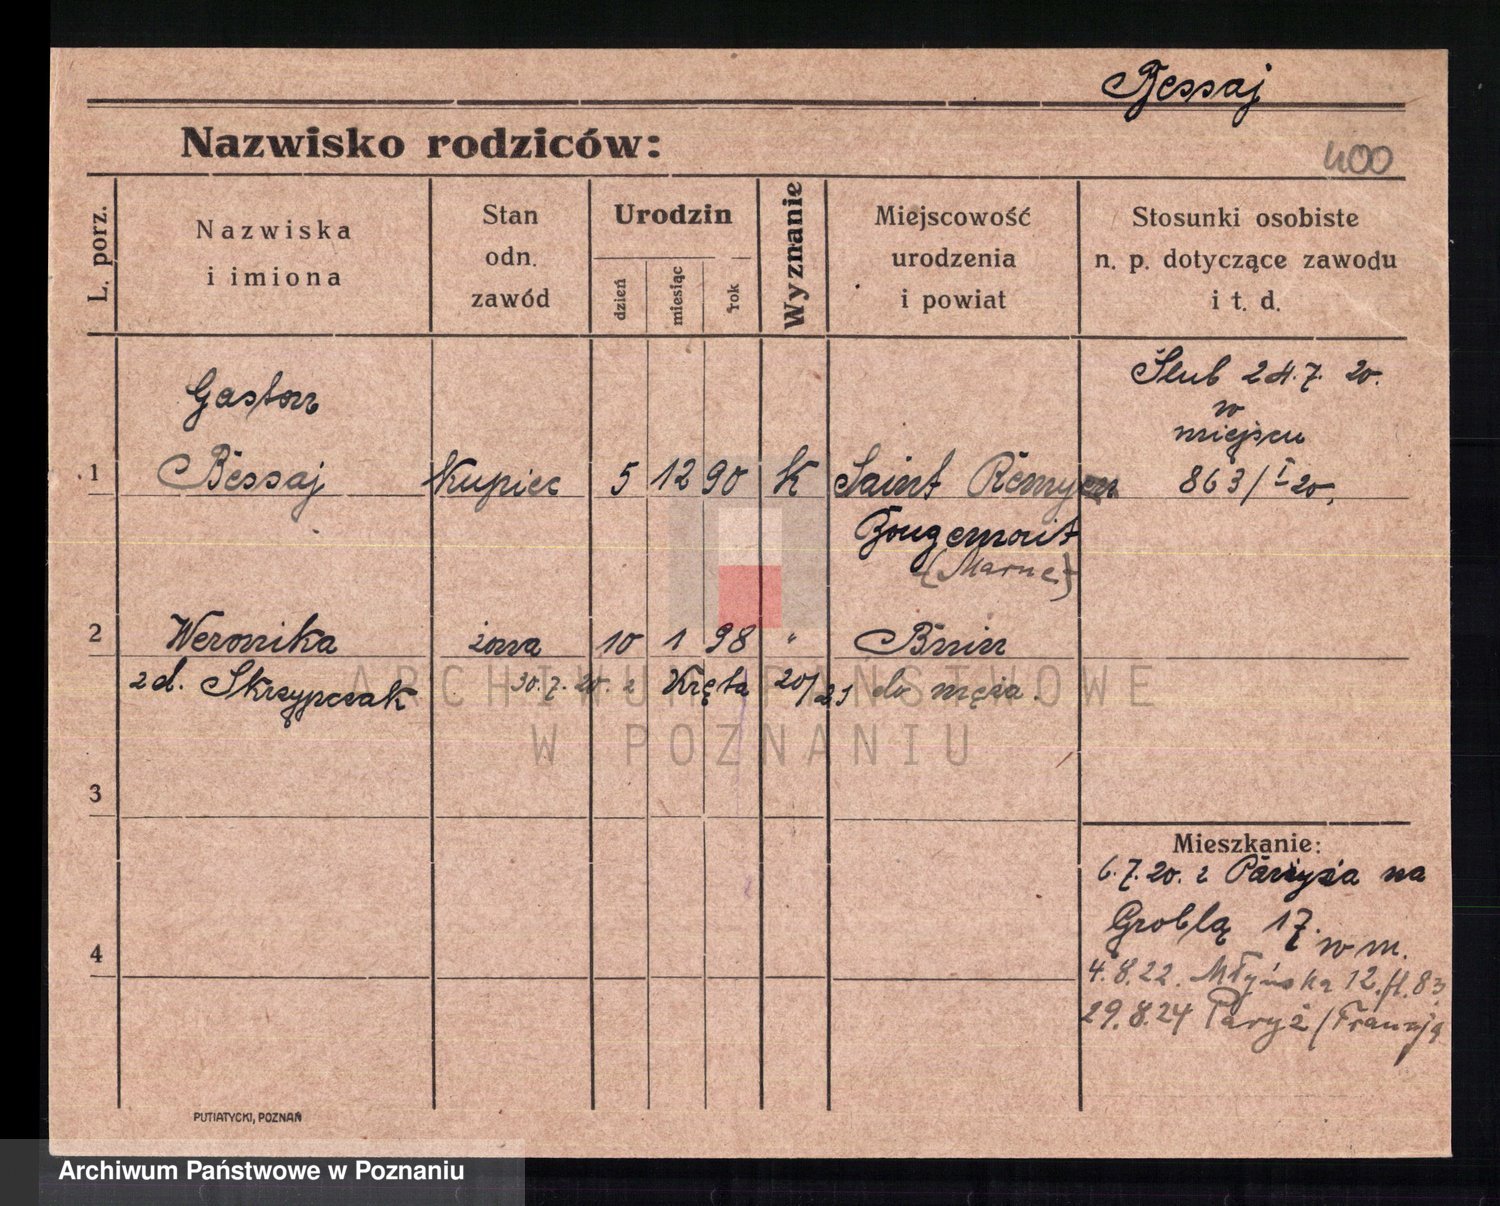 Bessaj
Nazwisko rodziców:
400
L. porz.
Nazwiska
i imiona
Stan
odn.
zawód
Urodzin
dzień
miesiąc
rok
Wyznanie
Miejscowość
urodzenia
i powiat
Stosunki osobiste
n. p. dotyczące zawodu
i t. d.
Gaston
Ślub 24.7. 20.
w
miejscu
1 Bessaj Kupiec 5 12 90 K Saint Remy en 863/I 20,
Bougemont
(Marne)
2 Weronika żona 10 1 98 " Bnin
zd. Skrzypczak 30.7.20. z Kręta 20/21 do męża.
3
Mieszkanie:
6.7.20. z Paryża na
Groblą 17.
w m.
4
4.8.22. Młyńska 12. fl. 83
29.8.24 Paryż (Francja
PUTIATYCKI, POZNAŃ
ARCHIWUM PAŃSTWOWE
W POZNANIU
Archiwum Państwowe w Poznaniu